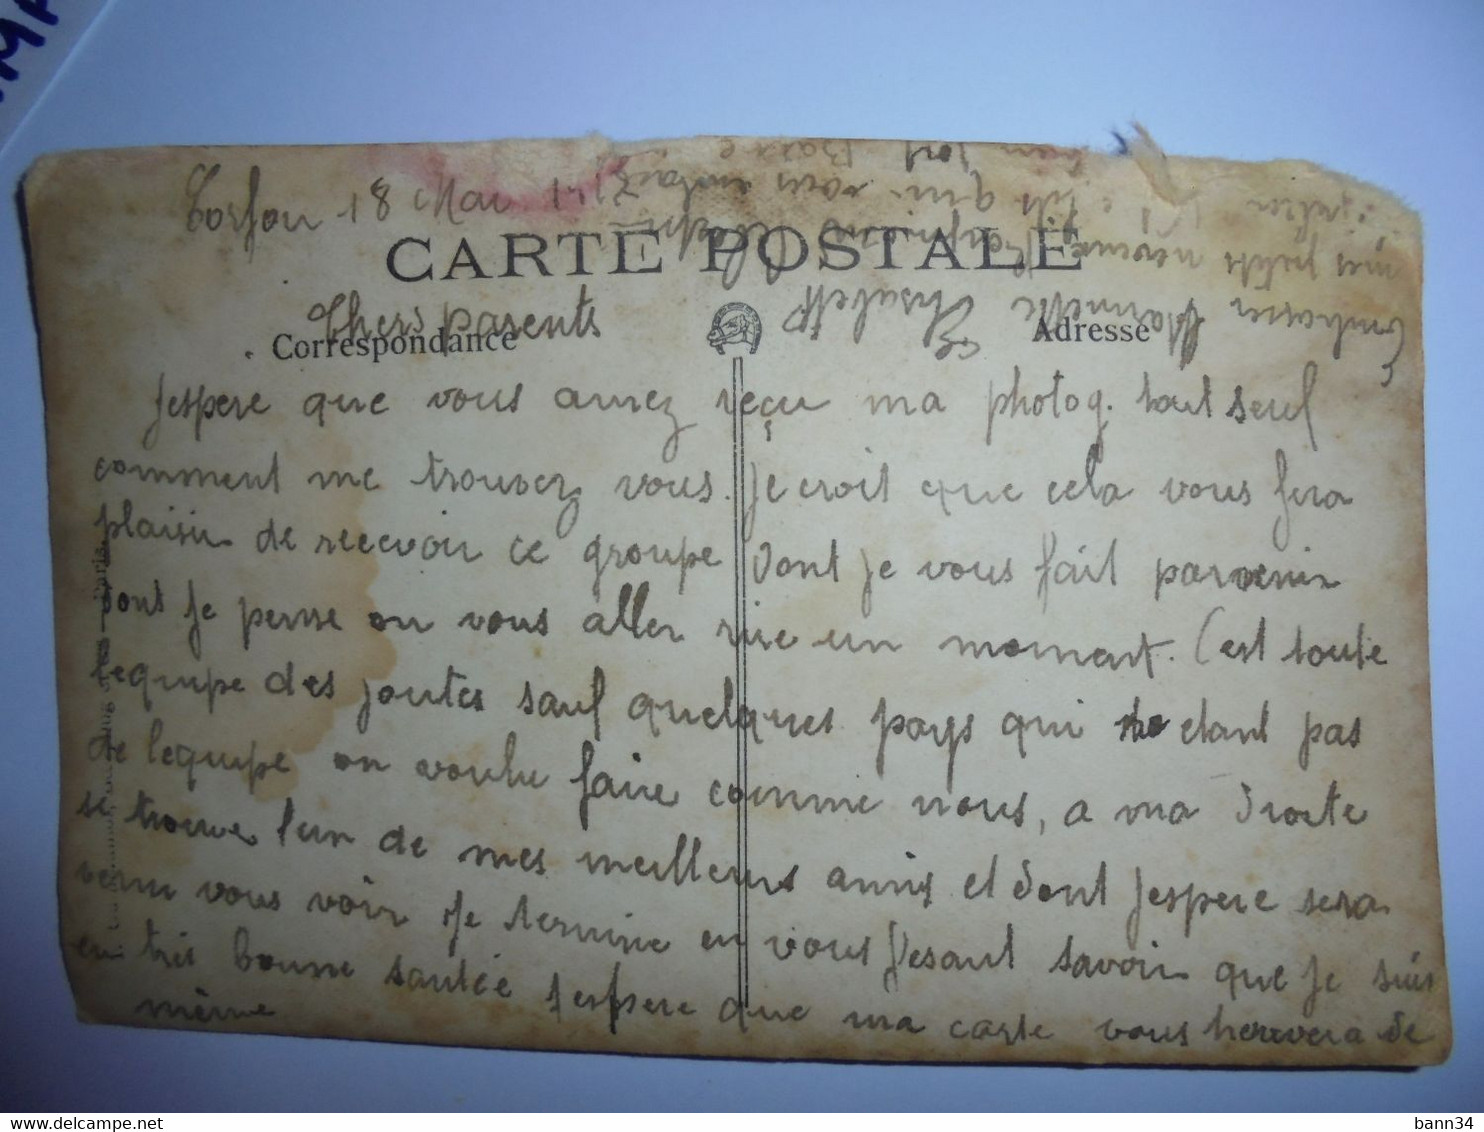 Torfou 18 Mai
CARTE POSTALE
Chers parents
Correspondance
Adresse
Jespere que vous aurez reçu ma photog. tout seul
comment me trouvez vous. Je croit que cela vous fera
plaisir de recevoir ce groupe dont je vous fait parvenir
dont je pense on vous aller rire un moment. C'est toute
l'equipe des joutes sauf quelques pays qui etant pas
de lequipe on voulu faire comme nous, a ma droite
se trouve l'un de mes meilleurs amis et dont Jespere sera
venu vous voir Je termine en vous fesant savoir que Je suis
en très bonne santée Jespere que ma carte vous trouvera de
même
Embrasser Elisabeth
mes petits neveux
fils qui vous embrasse
bien fort
Paris
bann34